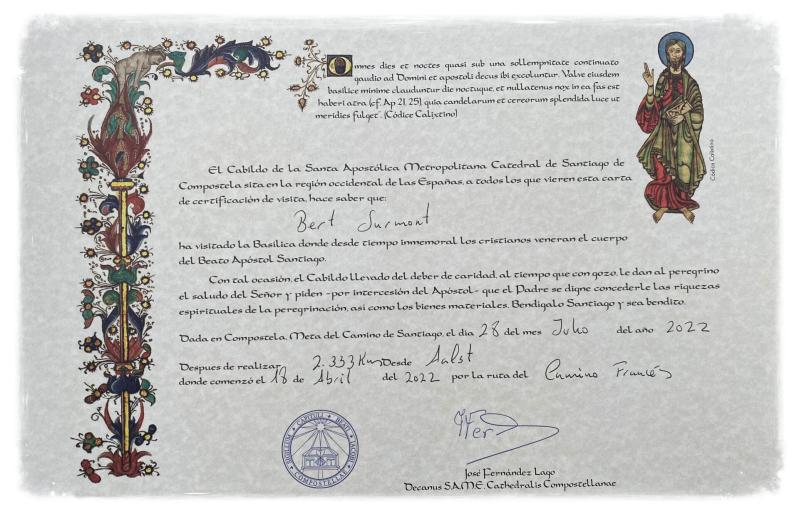 Omnes dies et noctes quasi sub una sollempnitate continuato
gaudio ad Domini et apostoli decus ibi excoluntur. Valve eiusdem
basilice minime clauduntur die noctuque, et nullatenus nox in ea fas est
haberi atra (cf. Ap 21, 25), quia candelarum et cereorum splendida luce ut
meridies fulget". (Códice Calixtino)
Códice Calixtino
El Cabildo de la Santa Apostólica Metropolitana Catedral de Santiago de
Compostela sita en la región occidental de las Españas, a todos los que vieren esta carta
de certificación de visita, hace saber que:
Bert Surmont
ha visitado la Basílica donde desde tiempo inmemorial los cristianos veneran el cuerpo
del Beato Apóstol Santiago.
Con tal ocasión, el Cabildo llevado del deber de caridad, al tiempo que con gozo, le dan al peregrino
el saludo del Señor y piden -por intercesión del Apóstol- que el Padre se digne concederle las riquezas
espirituales de la peregrinación, así como los bienes materiales. Bendígalo Santiago y sea bendito.
Dada en Compostela, Meta del Camino de Santiago, el día 28 del mes Julio del año 2022
Despues de realizar 2.333 Km Desde Aalst
donde comenzó el 18 de Abril del 2022 por la ruta del Camino Francés
SIGILLUM CAPITULI BEATI JACOBI COMPOSTELLAE
José Fernández Lago
Decanus S.A.M.E. Cathedralis Compostellanae